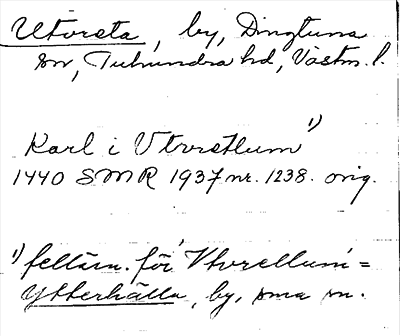 Utvreta, by, Dingtuna
sn, Tuhundra hd, Västm. l.
Karl i Vtvretlum 1)
1440 SMR 1937 nr. 1238. orig.
1) felläsn. för Vtvrellum =
Ytterhälla, by, sma sn.